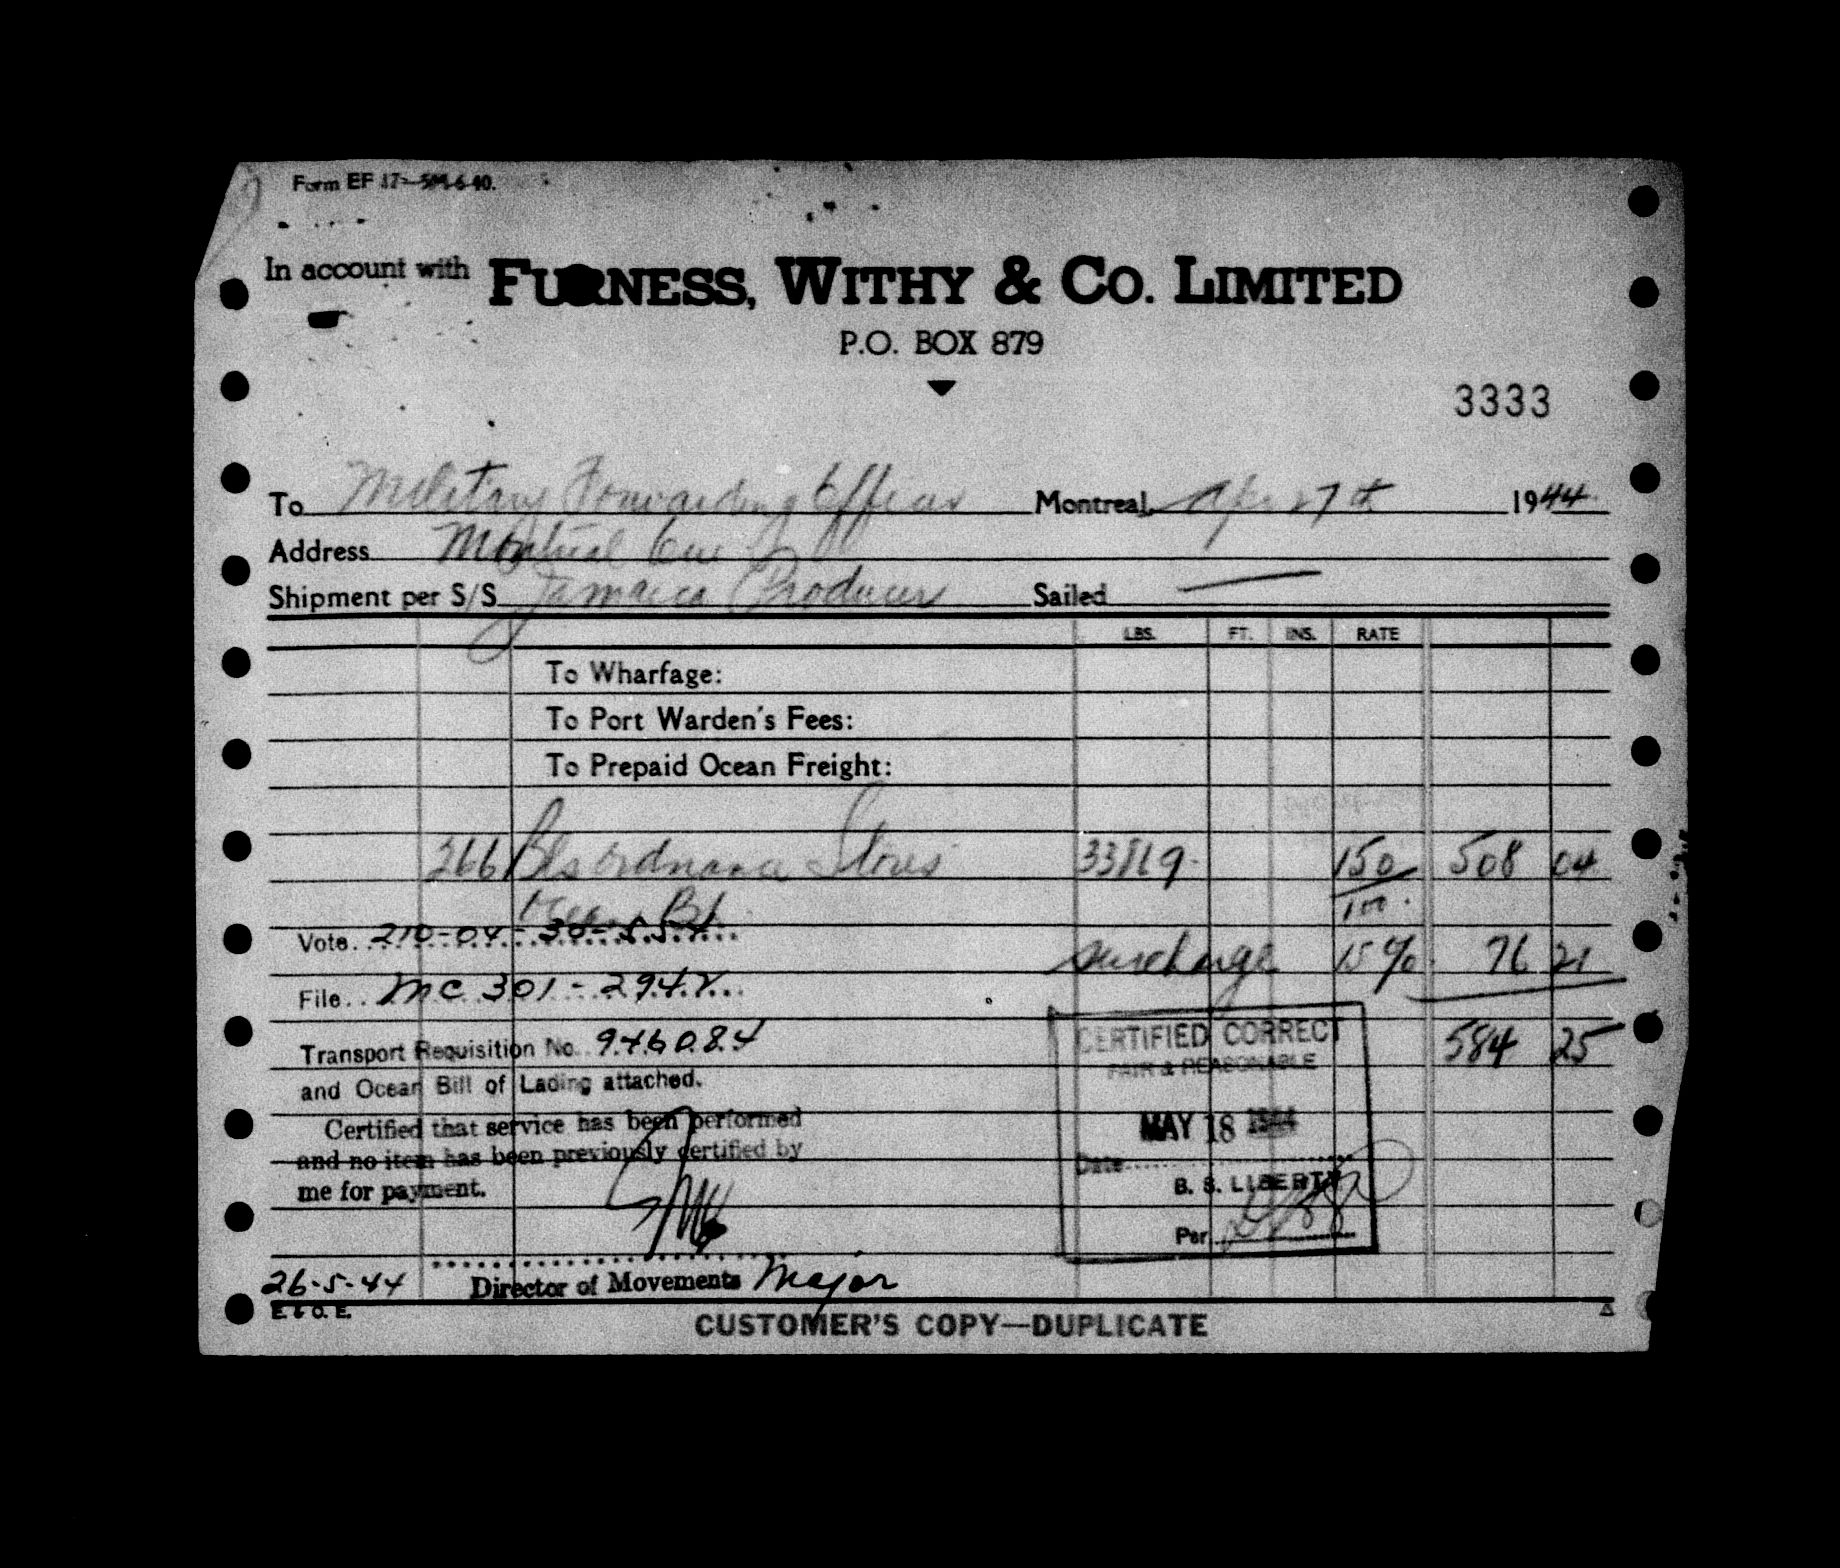 Form EF 17—5M-6-40.
In account with FURNESS, WITHY & CO. LIMITED
P.O. BOX 879
3333
To Military Forwarding Officer Montreal, Apr 27th 1944
Address Montreal Que
Shipment per S/S Jamaica Producer Sailed —
LBS. FT. INS. RATE
To Wharfage:
To Port Warden's Fees:
To Prepaid Ocean Freight:
266 Bls Ordnance Stores 33869 150/100 508 04
Vote 210-04-30-554
surcharge 15% 76 21
File MC 301-2942
Transport Requisition No. 946084 584 25
and Ocean Bill of Lading attached.
Certified that service has been performed
and no item has been previously certified by
me for payment.
CERTIFIED CORRECT
FAIR & REASONABLE
MAY 18 1944
Date
B. S. LIBERTY
Per
26-5-44 Director of Movements Major
E. & O. E.
CUSTOMER'S COPY—DUPLICATE